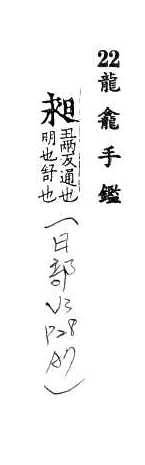 22 龍龕手鑑
昶 丑兩反通也
明也舒也
(日部 V3 P28 A7)